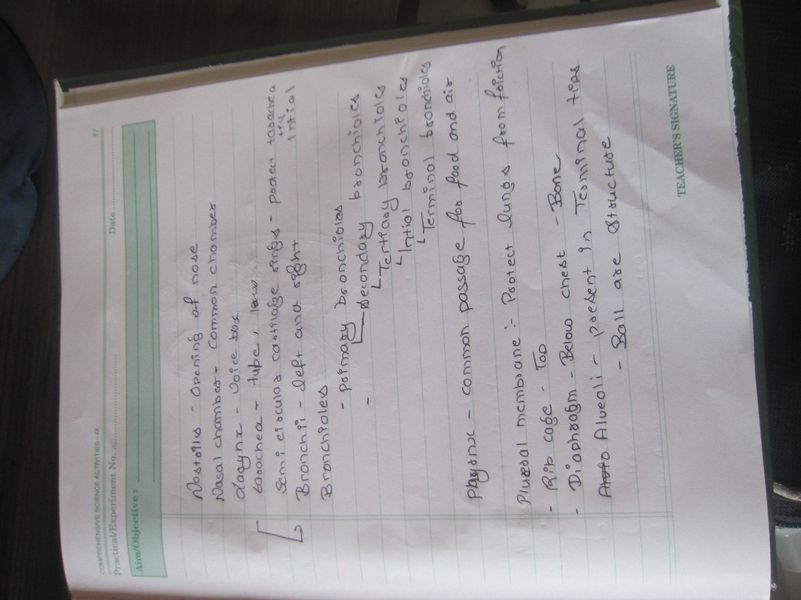 COMPREHENSIVE SCIENCE ACTIVITIES—IX
77
Practical/Experiment No. ........ Date ........
Aim/Objective :
Nostrils - opening of nose
Nasal chamber - Common chamber
Larynx - Voice box
trachea - tube,
Semi circular cartilage rings - protect trachea
Bronchii - left and right
Bronchioles
- primary bronchioles
- secondary bronchioles
Tertiary Bronchioles
Intial bronchioles
Terminal bronchioles
Pharynx - common passage for food and air
Plueral membrane :- Protect lungs from friction
- Rib cage - Top - Bone
- Diaphragm - Below chest
Alveoli - present in Terminal
- Ball are structure
TEACHER'S SIGNATURE